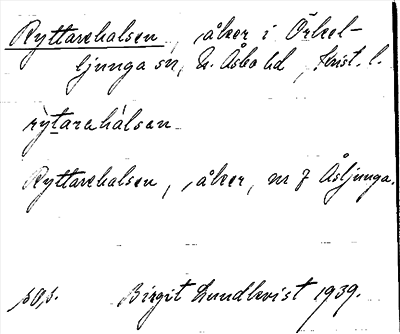 Ryttarehalsen, åker i Örkel-
ljunga sn, N. Åsbo hd, Krist. l.
rỳtarehàlsen
Ryttarehalsen, åker, nr 7 Åsljunga.
Birgit Lundkvist 1939.